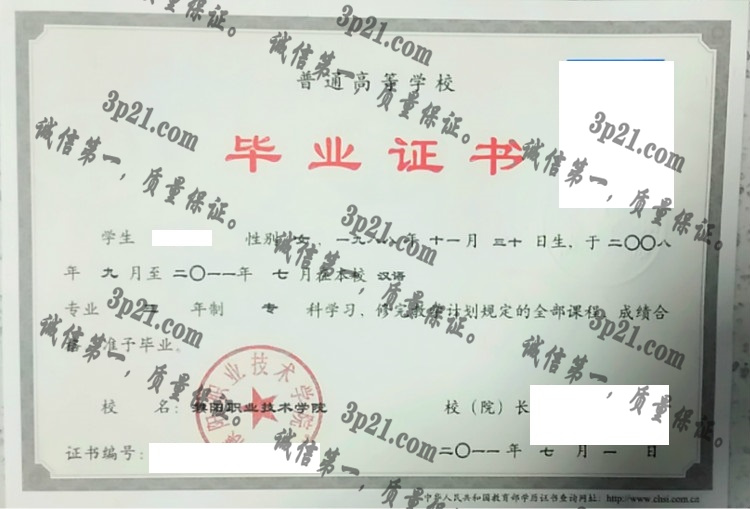 普通高等学校
毕业证书
学生 性别 女，一九八八年 十一月 三十 日生，于 二〇〇八
年 九 月至 二〇一一年 七 月在本校 汉语
专业 三 年制 专 科学习，修完教学计划规定的全部课程，成绩合
格，准予毕业。
校 名： 职业技术学院
校（院）长
证书编号：
二〇一一 年 七 月 一 日
中华人民共和国教育部学历证书查询网址：http://www.chsi.com.cn
职业技术学院
质量保证。
3p21.com
诚信第一，质量保证。
3p21.com
诚信第一，质量保证。
3p21.com
诚信第一，质量保证。
3p21.com
诚信第一，质量保证。
3p21.com
诚信第一，质量保证。
3p21.com
诚信第一，质量保证。
3p21.com
诚信第一，质量保证。